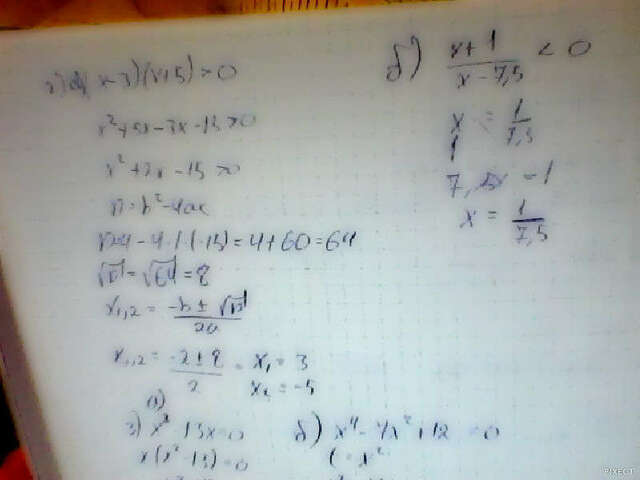 2) а) (x-3)(x+5)>0
x²+5x-3x-15>0
x²+2x-15>0
D=b²-4ac
D=4-4·1·(-15)=4+60=64
√D=√64=8
x₁,₂ = (-b±√D)/2a
x₁,₂ = (-2±8)/2 = x₁=3
x₂=-5
б) (x+1)/(x-7,5) < 0
x/1 = 1/7,5
7,5x=1
x = 1/7,5
а)
3) x³-13x=0
x(x²-13)=0
б) x⁴-7x²+12=0
PIXECT